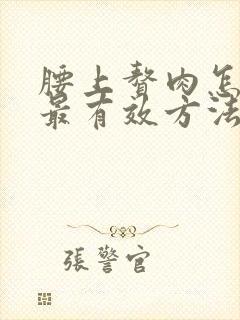 腰上赘肉怎
最有效方法
張警官